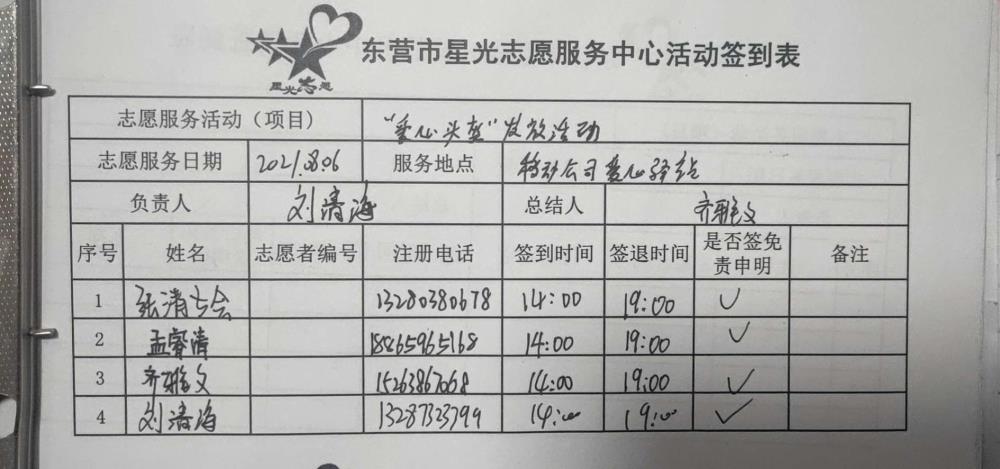 星光志愿
东营市星光志愿服务中心活动签到表
志愿服务活动（项目） “爱心头盔”发放活动
志愿服务日期 2021.08.06 服务地点 移动公司爱心驿站
负责人 刘清海 总结人 齐雅文
序号 姓名 志愿者编号 注册电话 签到时间 签退时间 是否签免责申明 备注
1 张清 13280380678 14:00 19:00 ✓
2 孟睿清 18865965168 14:00 19:00 ✓
3 齐雅文 15263867068 14:00 19:00 ✓
4 刘清海 13287323799 14:00 19:00 ✓